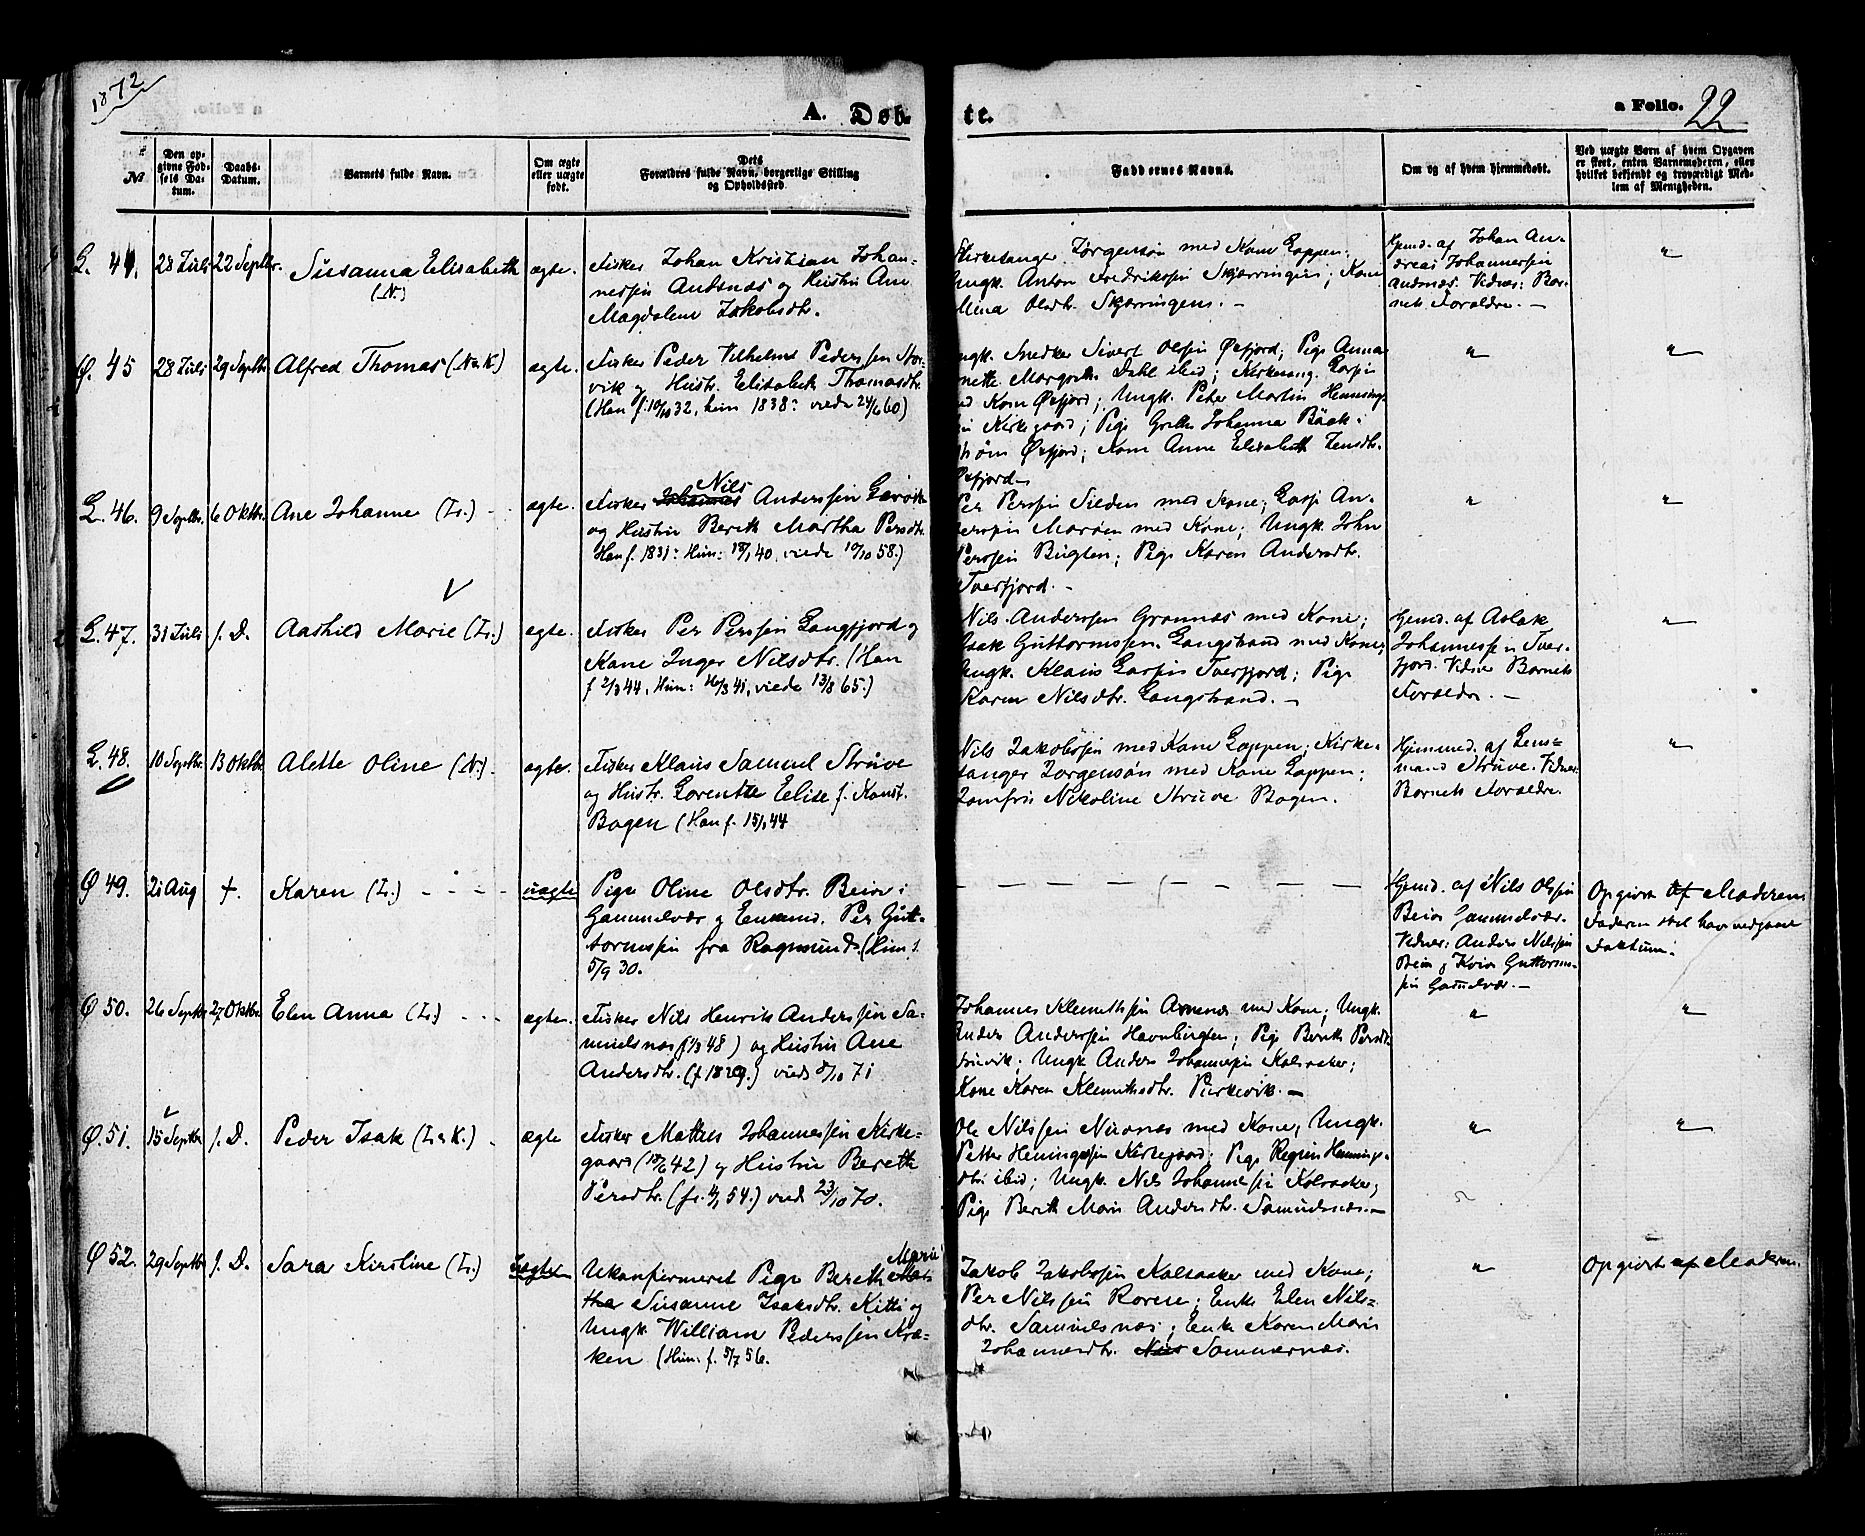 1872
A. Døb-
te.
a Folio. 22
№
Den op-
givne Fød-
sels Da-
tum.
Daabs-
Datum.
Barnets fulde Navn.
Om ægte
eller uægte
født.
Dets
Forældres fulde Navn, borgerlige Stilling
og Opholdssted.
Faddernes Navne.
Om og af hvem hjemmedøbt.
Ved uægte Børn af hvem Opgaven
er skeet, enten Barnemoderen, eller
hvilket bekjendt og troværdigt Med-
lem af Menigheden.
L. 44. 28 Juli 22 Septbr. Susanna Elisabeth
(N.)
ægte.
Fisker Johan Kristian Johan-
nessen Andsnæs og Hustru Ane
Magdalene Jakobsdtr.
Kirkesanger Jørgensøn med Kone Loppen;
Ungk. Anton Fredriksen Skjærvingen; Kone
Mina Olsdtr. Skjærvingen. -
Hjmd. af Johan An-
dreas Johannessen
Andsnæs. Vidner: Bar-
nets Forældre. -
"
Ø. 45 28 Juli 29 Septbr Alfred Thomas (N. & K)
ægte.
Fisker Peder Vilhelms Pederssen Stor-
vik og Hustr. Elisabeth Thomasdtr.
(Han f. 10/10 32, hun 1838: viede 24/6 60)
Ungk. Snedker Sivert Olsen Øxfjord; Pige Anna
nette Margrethe Dahl ibid; Kirkesang. Larsen
med Kone Øxfjord; Ungk. Peter Martin Henning-
sen Kirkegaard; Pige Grethe Johanna Bäck-
strøm Øxfjord; Kone Anne Elisabeth Jensdtr.
Øxfjord -
"
"
L. 46. 9 Septbr. 6 Oktbr. Ane Johanne (L.) - -
ægte.
Nils
Fisker Johannes Anderssen
og Hustru Berith Martha Persdtr.
Han f. 1831: Hun: 18/1 40, viede 10/10 58.)
Per Persen Silden med Kone; Lars An-
dersen Marøen med Kone; Ungk. John
Perssen Bugten; Pige Karen Andersdtr.
Tverfjord. -
"
"
L. 47. 31 Juli s. D. Aashild Marie (L.)
ægte.
Fisker Per Perssen Langfjord og
Kone Inger Nilsdtr. (Han
f 2/3 44, Hun: 16/3 41, viede 13/8 65.)
Nils Anderssen Grønnæs med Kone;
Isak Guttormssen Langstrand med Kone;
Ungk. Klaus Larsen Tverfjord; Pige
Karen Nilsdtr. Langstrand. -
Hjmd. af Aslak
Johannessen Tver-
fjord. Vidner Barnets
Forældre. -
"
L. 48. 10 Septbr. 13 Oktbr Alette Oline (N.).
ægte.
Fisker Klaus Samuel Struve
og Hustr. Lorentze Elise f. Konst.
Bogen (Han f. 15/1 44
Nils Jakobsen med Kone Loppen; Kirke-
sanger Jørgensøn med Kone Loppen;
Jomfru Nikoline Struve Bogen.
Hjemmed. af Lens-
mand Struve. Vidner:
Barnets Forældre.
"
Ø 49. 21 Aug +. Karen (L.) - - - -
uægte
Pige Oline Olsdtr. Beiov i
Gammelvær og Enkemd. Per Gut-
tormssen fra Rognsund. (Hun f.
5/9 30.
Hjmd. af Nils Olssen
Beiov Gammelvær.
Vidner: Anders Nilssen
Beiov og Guttorms-
sen Gammelvær. -
Opgivet af Moderen
Faderen skal have vedgaaet
Faktum.
Ø 50. 26 Septbr 27 Oktbr. Elen Anna (L.) - - -
ægte.
Fisker Nils Henrik Anderssen Sa-
muelsnæs 48) og Hustru Ane
Andersdtr. (f 1829.) viede 8/10 71
Johannes Klemetssen Arnenæs med Kone; Ungk.
Anders Anderssen Havnbugten; Pige Berith Persdtr
Ungk Anders Johannessen Kolsaaker;
Kone Karen Klemetsdtr. -
"
"
Ø. 51. 15 Septbr s. D. Peder Isak (L. & K.) -
ægte
Fisker Mathis Johannessen Kirke-
gaard 42) og Hustru Berith
Persdtr. 54.) viede 23/10 70.
Ole Nilssen med Kone; Ungk.
Petter Henningsen Kirkegaard; Pige Regine Hennings-
dtr. ibid; Ungk. Nils Johannessen Kolsaaker;
Pige Berith Maria Andersdtr. Samuelsnæs. -
"
"
Ø 52. 29 Septbr s. D. Sara Kirstine (L.)
Uægte
Ukonfirmeret Pige Berith Marie Mar-
tha Susanne Isaksdtr. Kitti og
Ungk. William Pederssen Kra-
ken (Hun. f. 5/7 56.
Jakob Jakobssen Kolsaaker med Kone;
Per Nilssen Roren; Enke Elen Nils-
dtr. Samuelsnæs; Enke Karen Maria
Johannesdtr. Sommernæs.
"
Opgivet af Moderen.